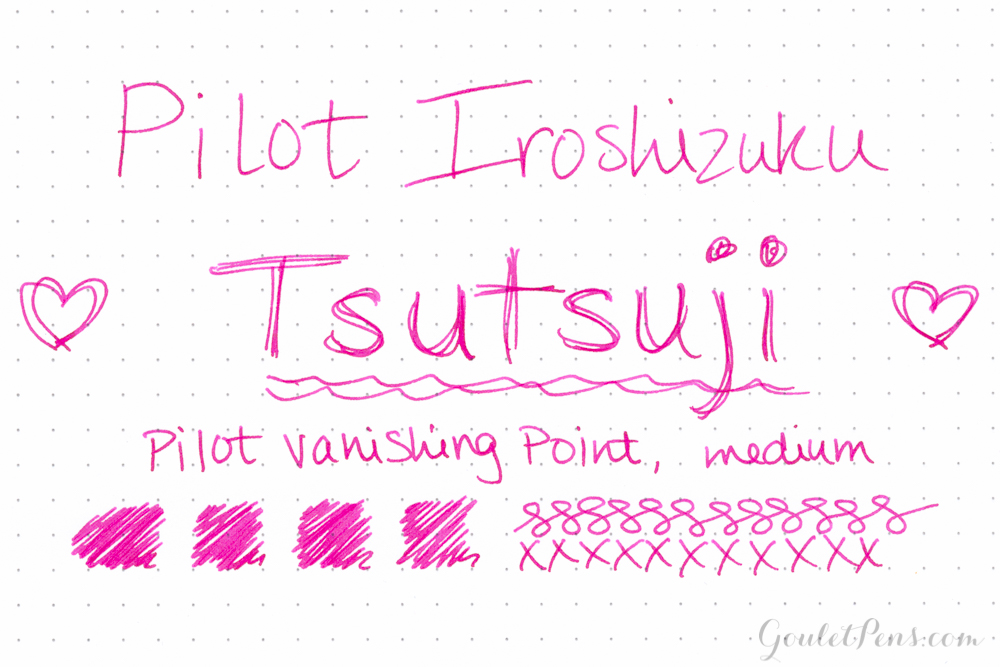 Pilot Iroshizuku
Tsutsuji
Pilot Vanishing Point, medium
xxxxxxxxxxxx
GouletPens.com